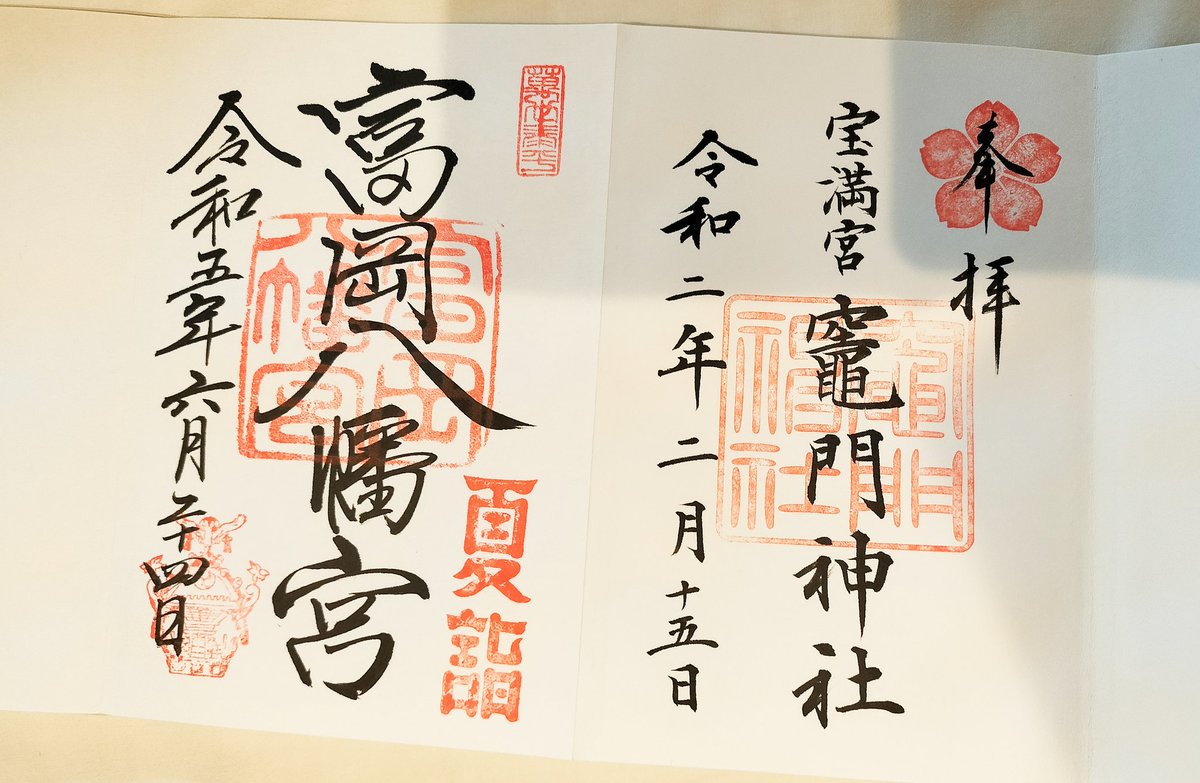 奉拝
宝満宮 竈門神社
竈門
神社
令和二年二月十五日
富岡八幡宮
富岡
八幡宮
夏詣
令和五年六月二十四日